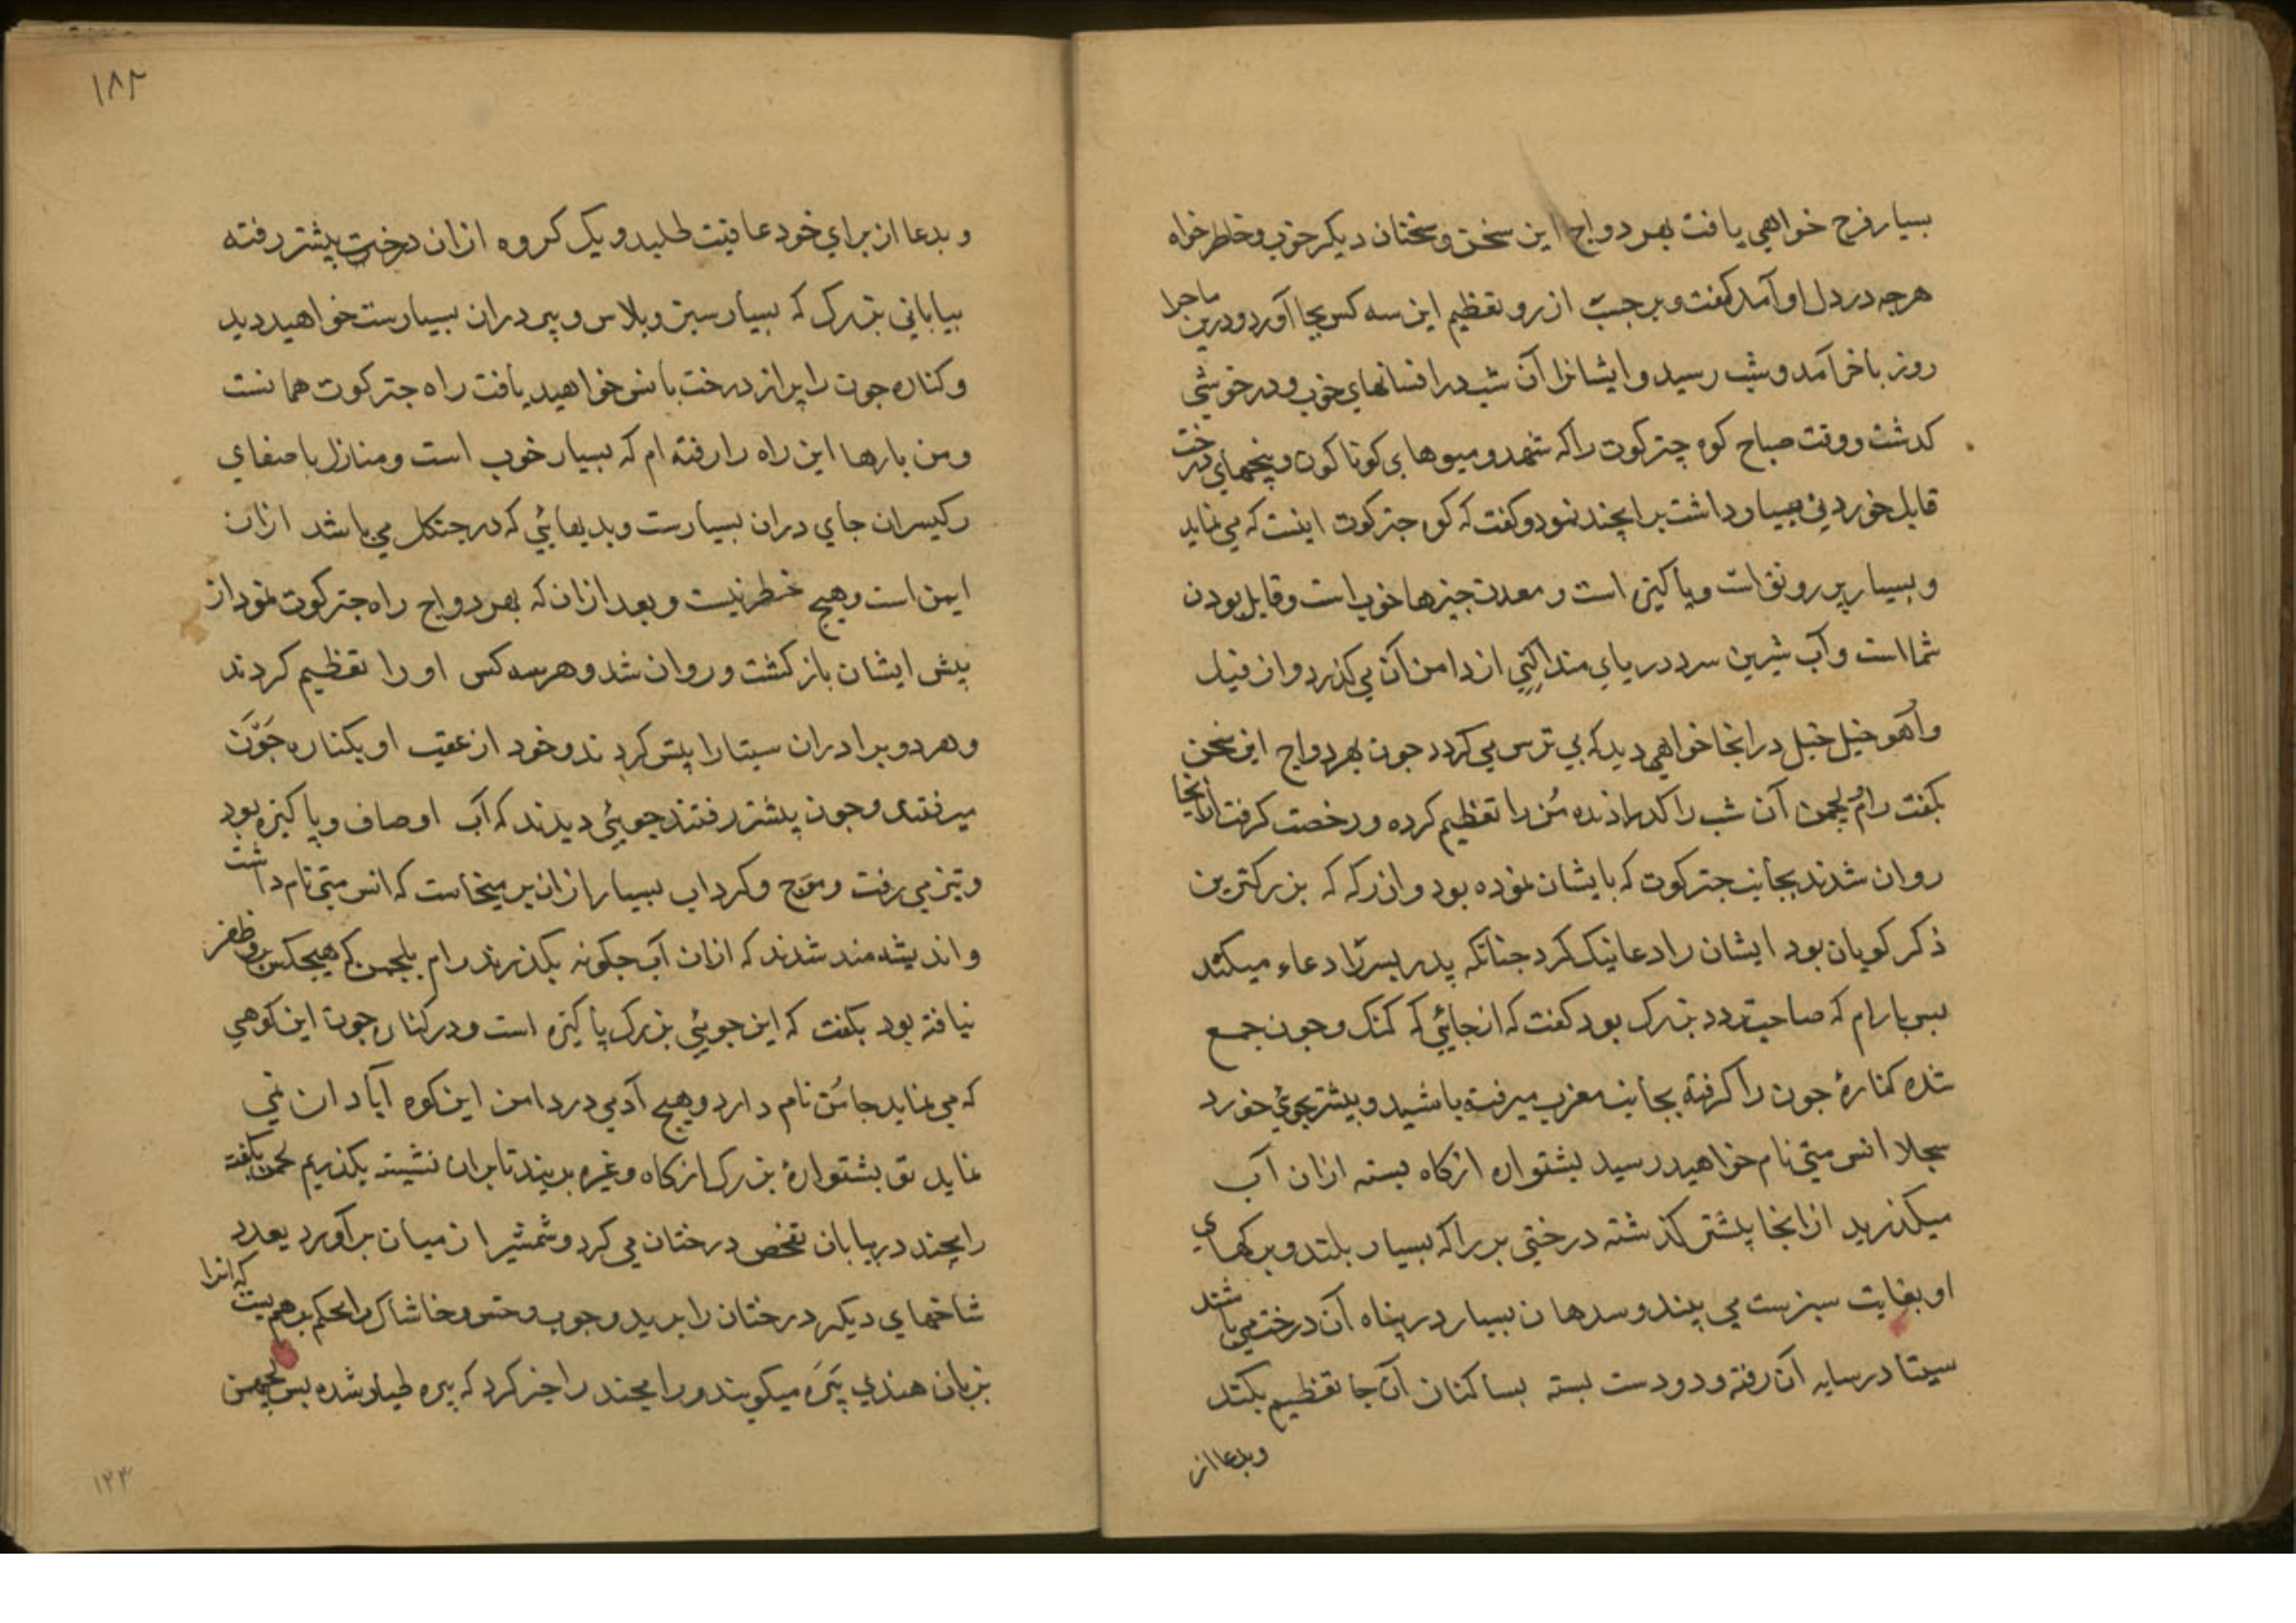 بسیار فرح خواهی یافت بهردواج این سخن و سخنان دیکر خوب و خاطر خواه
هرچه در دل او آمد کفت و برجست از رو تعظیم این سه کس بجا آورد و درین ماجرا
روز باخر آمد و شب رسید و ایشانرا آن شب در افسانهای خوب و در خوشی
کذشت و وقت صباح کوه چترکوت را که شهد و میوهای کوناکون و بیخهای درخت
قابل خوردنی بسیار داشت برامچند نمود و کفت که کوه جترکوت اینست که می نماید
و بسیار پر رونق است و پاکیزه است و معدن جیزها خوب است و قابل بودن
شما است و آب شیرین سرد دریای منداکنی از دامن آن می کذرد و از فیل
و آهو خیل خیل در انجا خواهی دید که بی ترس می کردد جون بهردواج این سخن
بکفت رام و لچمن آن شب را کذرانده مُن را تعظیم کرده و رخصت کرفت ازانجا
روان شدند بجانب جترکوت که بایشان نموده بود و ان رکه که بزرکترین
ذکر کویان بود ایشان را دعا نیک کرد جنانکه پدر پسر را دعاء میکند
پس با رام که صاحب تردد بزرک بود کفت که از جائی که کنک و جون جمع
شده کنارهٔ جون را کرفته بجانب مغرب میرفته باشید و بیشتر بجوئی خورد
سجلا انس متی نام خواهید رسید پشتواره از کاه بسته ازان آب
میکذرید از انجا پیشتر کذشته درختی بر را که بسیار بلند و برکهای
او بغایت سبزست می بیند و سدهان بسیار در پناه آن درخت می باشند
سیتا در سایه آن رفته و دو دست بسته بساکنان آن جا تعظیم بکند
و بدعا از
۱۸۲
و بدعا از برای خود عافیت طلبد و یک کروه ازان درخت پیشتر رفته
بیابانی بزرک که بسیار سبز و پلاس و بیر دران بسیارست خواهید دید
و کناره جون را پر از درخت بانس خواهید یافت راه جترکوت همانست
و من بارها این راه را رفته ام که بسیار خوب است و منازل باصفای
رکیسران جای دران بسیارست و بدیهائی که در جنکل می باشد ازان
ایمن است و هیچ خطر نیست و بعد ازان که بهردواج راه جترکوت نمود از
پیش ایشان باز کشت و روان شد و هر سه کس او را تعظیم کردند
و هر دو برادران سیتا را پیش کردند و خود از عقب او بکناره جَوَن
میرفتند و جون پیشتر رفتند جوئی دیدند که آب او صاف و پاکیزه بود
و تیز می رفت و موج و کرداب بسیار ازان بر میخاست که انس متی نام داشت
و اندیشه مند شدند که ازان آب جکونه بکذرند رام بلچمن که هیچکس برو ظفر
نیافته بود بکفت که این جوئی بزرک پاکیزه است و در کناره جون این کوهی
که می نماید جائس نام دارد و هیچ آدمی در دامن این کوه آبادان نمی
نماید تو پشتوارهٔ بزرک از کاه و غیره بربند تا بران نشسته بکذریم لچمن بکفته
رامچند در بیابان تفحص درختان می کرد و شمشیر از میان برآورد بعدد
شاخهای دیکر درختان را برید و جوب و خس و خاشاک را محکم بر هم بست که انرا
بزبان هندی بیَره میکویند و رامچند را خبر کرد که بیره طیار شده پس لچمن
۱۲۳